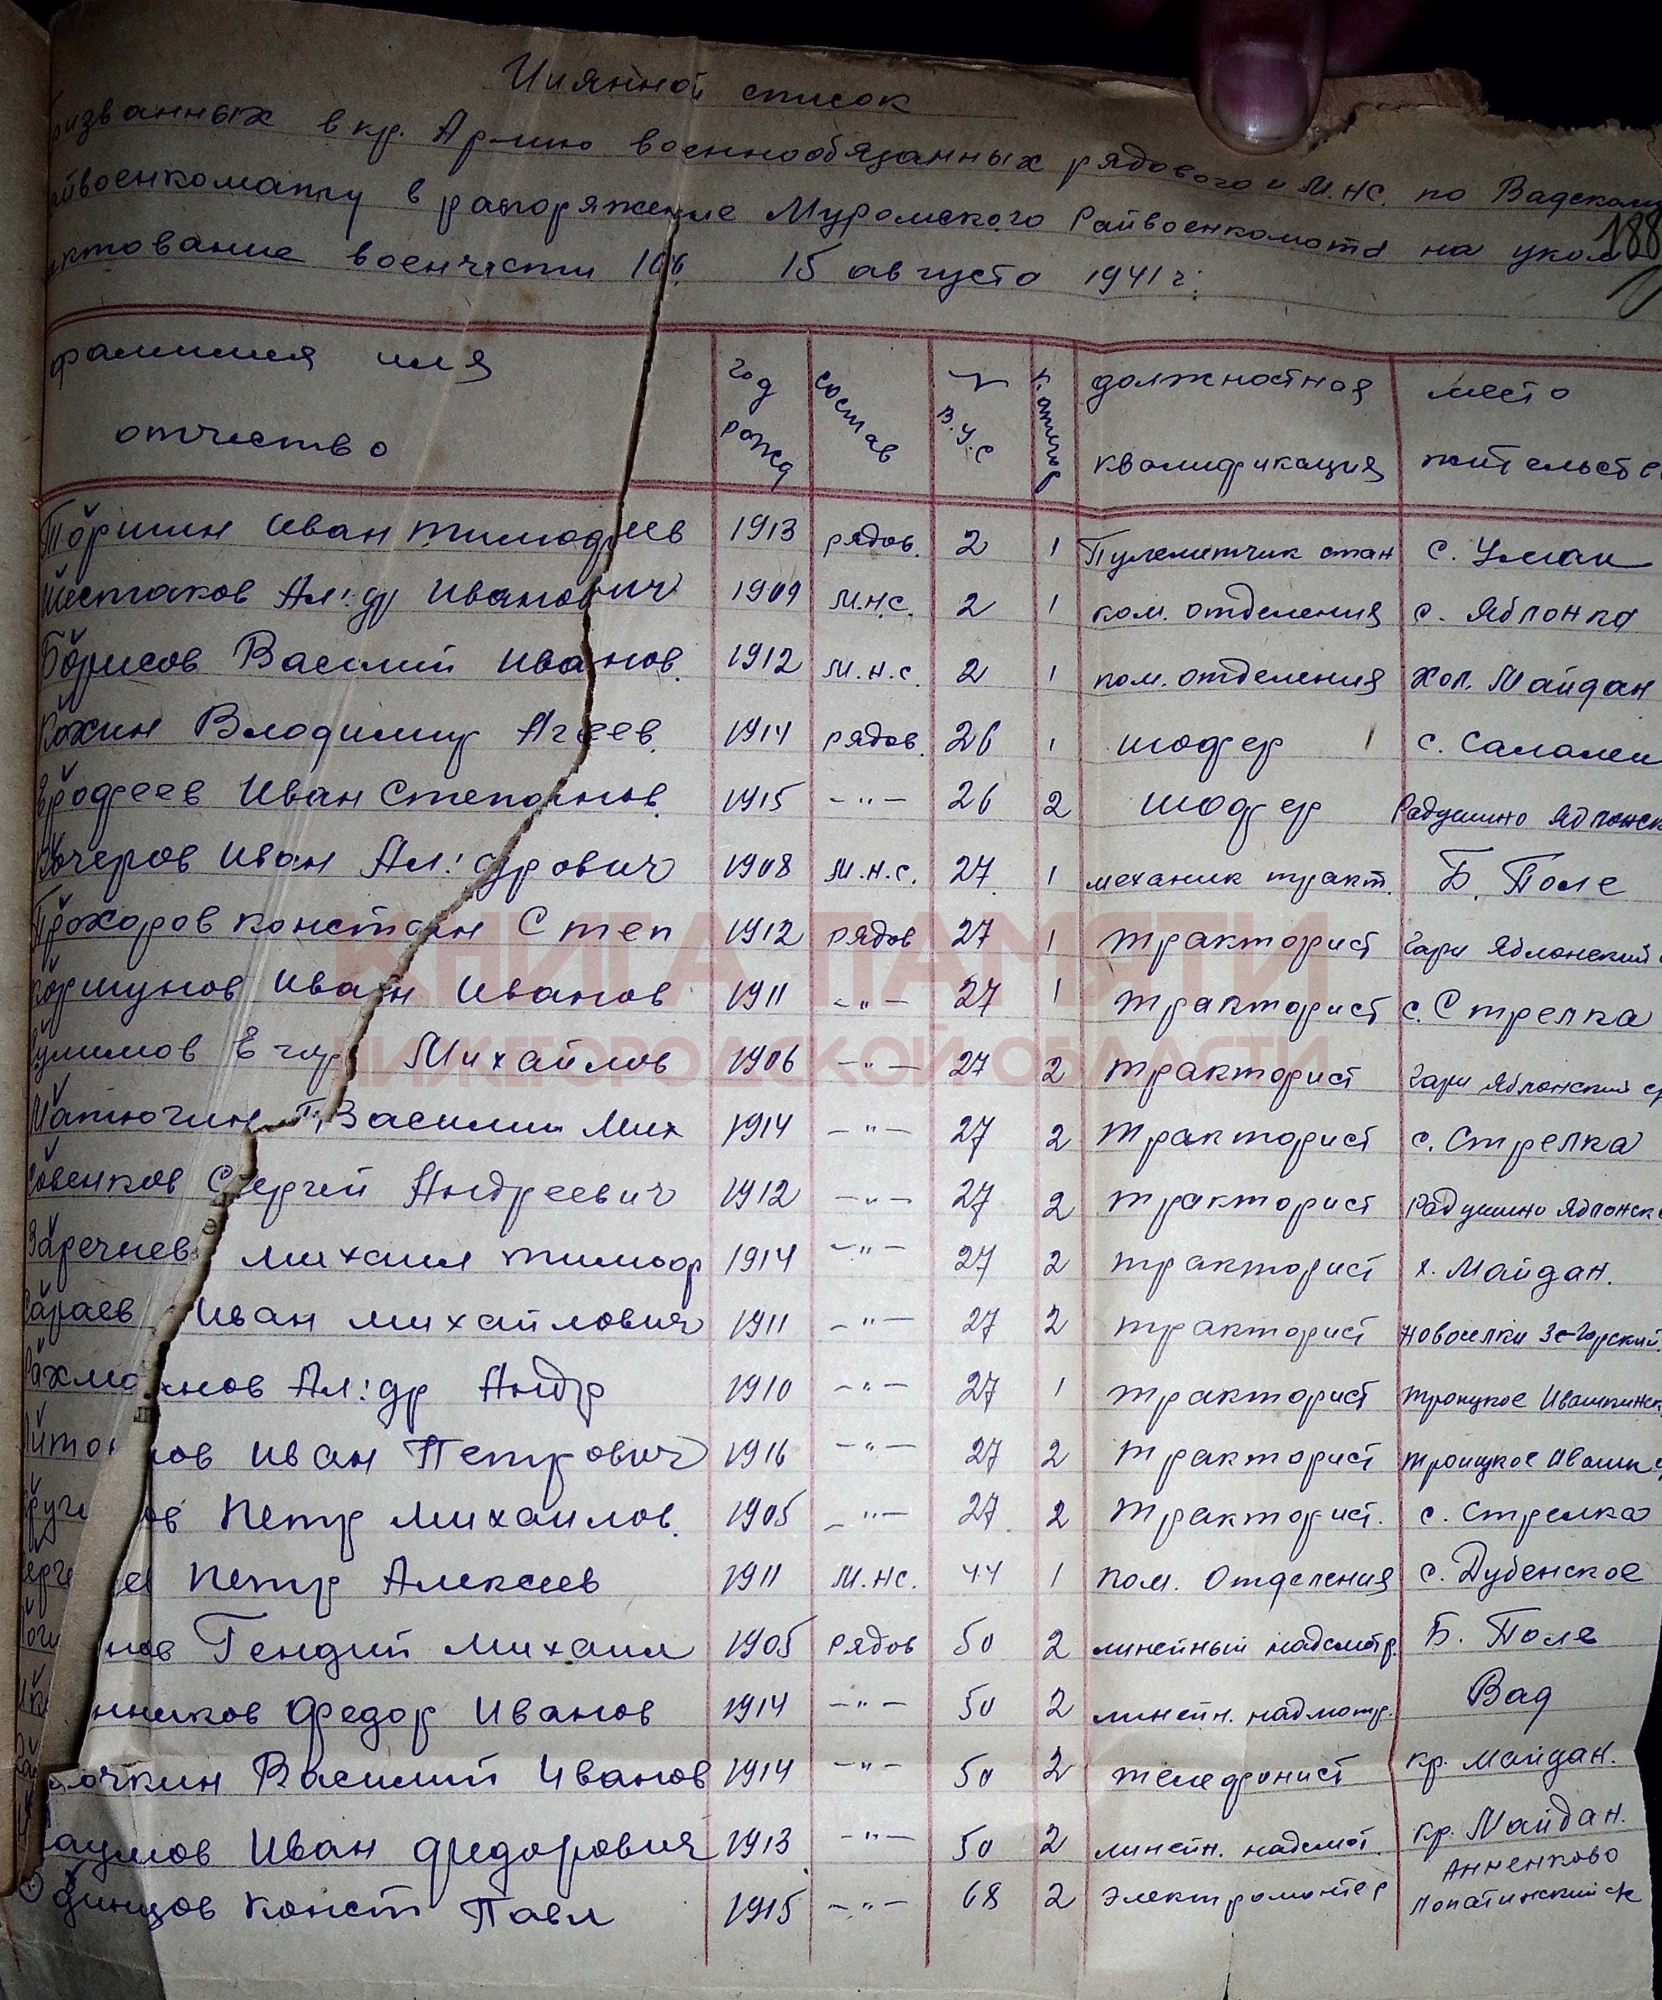 Имянной список
ризванных в кр. Армию военнообязанных рядового и М.НС. по Вадскому
йвоенкомату в распоряжение Муромского Райвоенкомата на уком
ктование военчасти 106. 15 августа 1941 г.
188
фамилия имя отчество год рожд состав В.У.С должностная квалификация место жительств
Торшин Иван тимофеев 1913 рядов. 2 1 Пулеметчик стан с.
Шестаков Ал:др Иванович 1909 М.НС. 2 1 ком. отделения с. Яблонка
Борисов Василий Иванов. 1912 М.Н.С. 2 1 пом. отделения Хол. Майдан
Кохин Владимир Агеев. 1914 рядов. 26 1 шофер с. Салалеи
Ерофеев Иван Степанов. 1915 -"- 26 2 шофер Радушино Яблонск
Кочеров Иван Ал:дрович 1908 М.Н.С. 27 1 механик тракт. Б. Поле
Прохоров констан Степ 1912 рядов 27 1 тракторист Гари Яблонский
Коршунов Иван Иванов 1911 -"- 27 1 тракторист с. Стрелка
улимов Егор Михайлов 1906 -"- 27 2 тракторист Гари Яблонский
Матюгин Василий Мих 1914 -"- 27 2 тракторист с. Стрелка
Совенков Сергей Андреевич 1912 -"- 27 2 тракторист Радушино Яблонск
Заречнев михаил тимоф 1914 -"- 27 2 тракторист х. Майдан.
Сараев Иван михайлович 1911 -"- 27 2 тракторист новоселки
Рахманов Ал:др Андр 1910 -"- 27 1 тракторист троицкое Ивашкинск
ов Иван Петрович 1916 -"- 27 2 тракторист троицкое Ивашк
ов Петр Михаилов. 1905 -"- 27 2 Тракторист. с. Стрелка
ев Петр Алексеев 1911 М.НС. 44 1 пом. Отделения с. Дубенское
нов Гендий михаил 1905 рядов 50 2 линейный надсмотр. Б. Поле
нников Федор Иванов 1914 -"- 50 2 линейн. надмотр. Вад
очкин Василий Иванов 1914 -"- 50 2 телефонист кр. Майдан.
аумов Иван Федорович 1913 -"- 50 2 линейн. надсмот. кр. Майдан.
Одинцов Конст Павл 1915 -"- 68 2 электромонтер Анненково
Лопатинский
КНИГА ПАМЯТИ
НИЖЕГОРОДСКОЙ ОБЛАСТИ